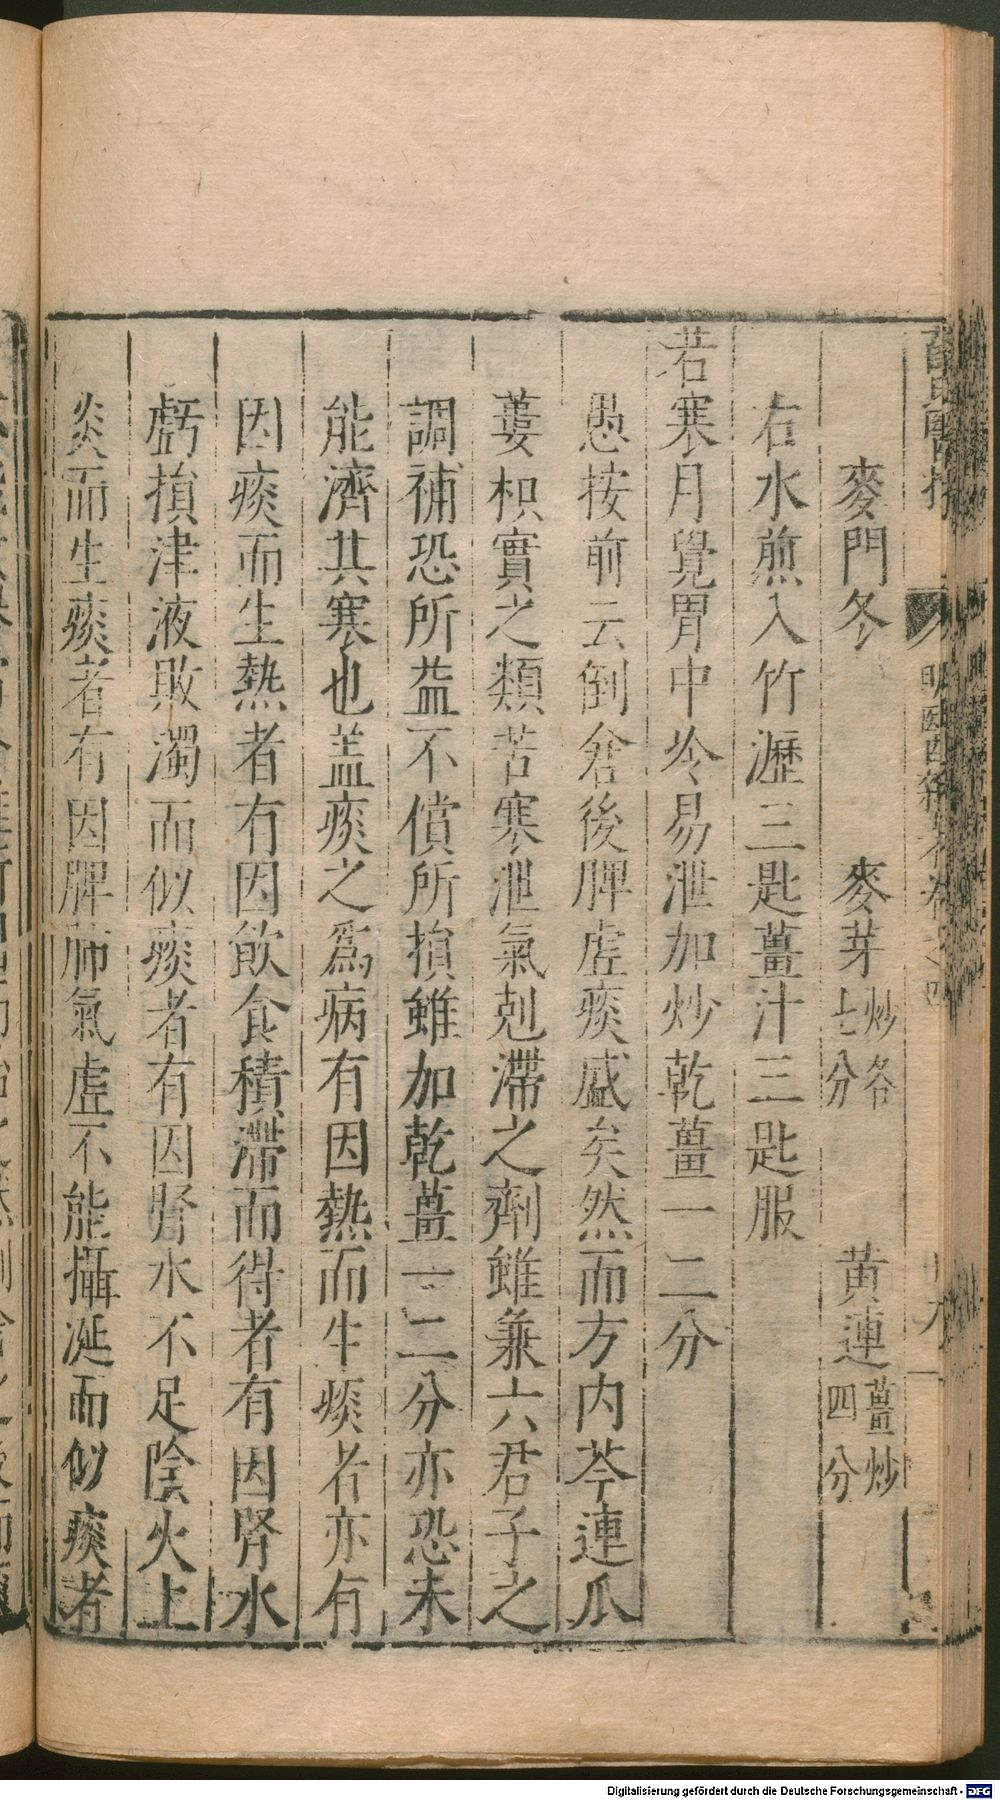 麥門冬　麥芽炒各七分　黄連薑炒四分
右水煎入竹瀝三匙薑汁三匙服
若寒月覺胃中冷易泄加炒乾薑一二分
愚按前云倒倉後脾虚痰盛矣然而方内芩連瓜
蔞枳實之類苦寒泄氣剋滯之劑雖兼六君子之
調補恐所益不償所損雖加乾薑一二分亦恐未
能濟其寒也盖痰之爲病有因熱而生痰者亦有
因痰而生熱者有因飲食積滯而得者有因腎水
虧損津液敗濁而似痰者有因腎水不足陰火上
炎而生痰者有因脾肺氣虚不能攝涎而似痰者
Digitalisierung gefördert durch die Deutsche Forschungsgemeinschaft - DFG